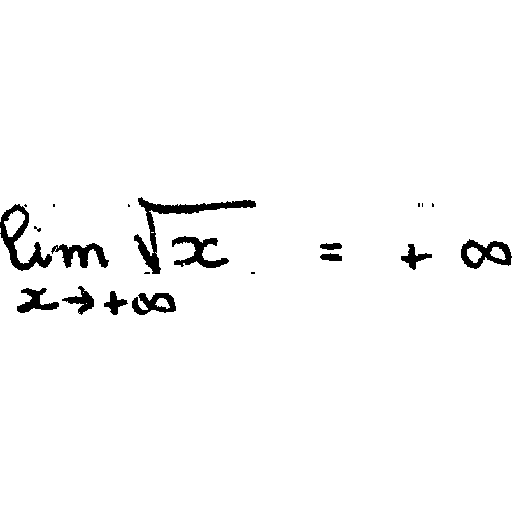 lim √x = + ∞
x → +∞